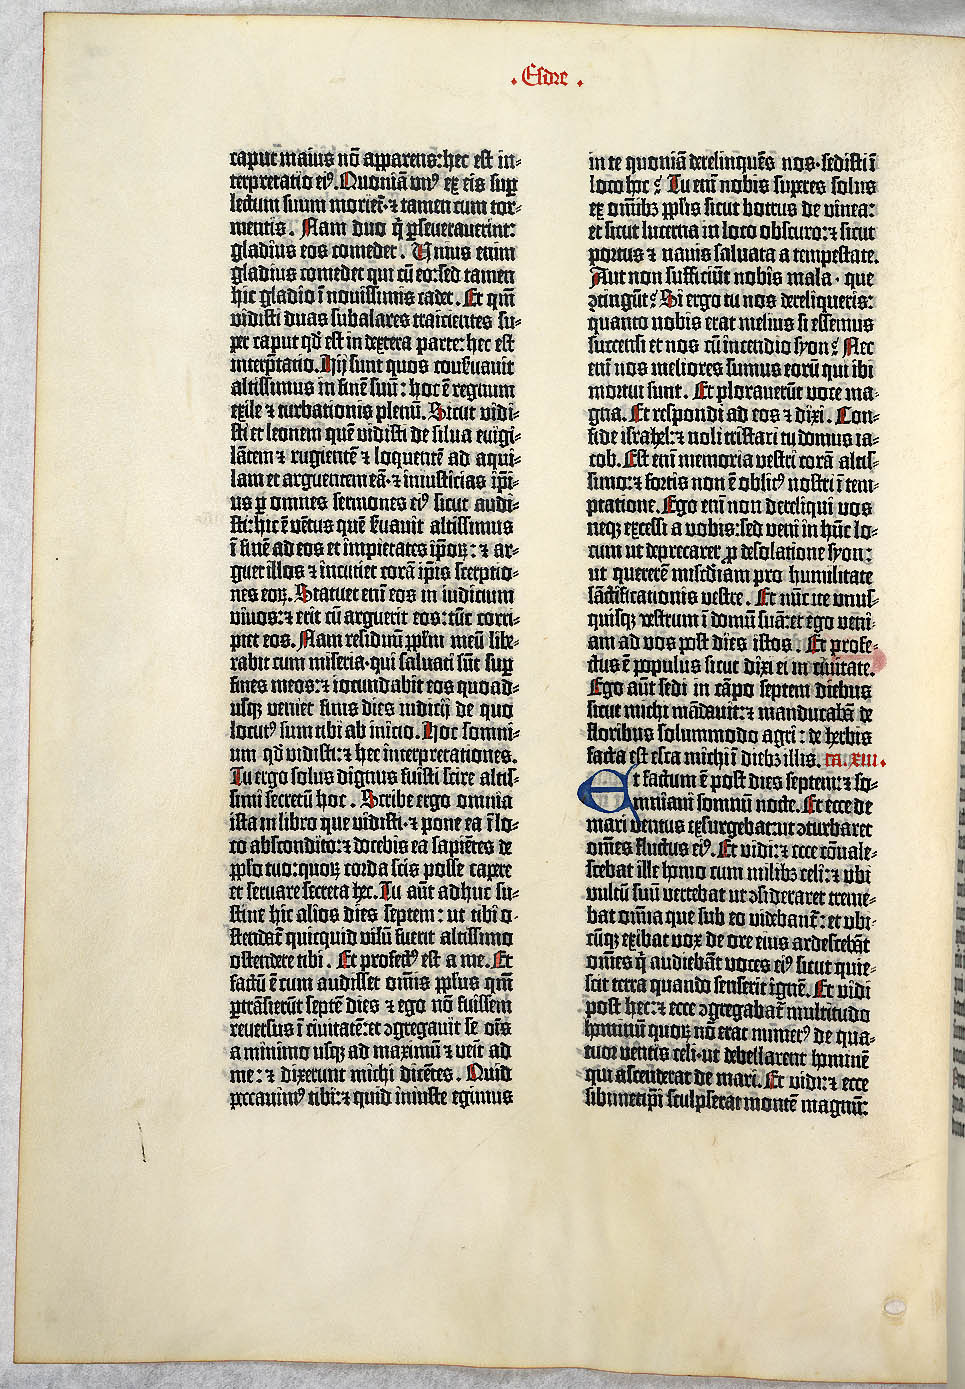 . Esdre .
caput maius nō apparens: hec est in⸗
terpretatio ei⁹. Quoniā vn⁹ ex eis sup
lectum suum moriet̄· ⁊ tamen cum tor⸗
mentis. Nam duo q̄ pseuerauerint:
gladius eos comedet. Unius enim
gladius comedet qui cū eo: sed tamen
hic gladio ī nouissimis cadet. Et qm̄
vidisti duas subalares traicientes su⸗
per caput qđ est in dextera parte: hec est
interp̄tatio. Hij sunt quos cōseruauit
altissimus in finē suū: hoc ē regnum
exile ⁊ turbationis plenū. Sicut vidi⸗
sti et leonem quē vidisti de silua euigi⸗
lātem ⁊ rugientē ⁊ loquentē ad aqui⸗
lam et arguentem eā· ⁊ iniusticias ip̄i⸗
us p omnes sermones ei⁹ sicut audi⸗
sti: hic ē vētus quē s̄uauit altissimus
ī finē ad eos et impietates ip̄oꝝ: ⁊ ar⸗
guet illos ⁊ incutiet corā ip̄is sceptio⸗
nes eoꝝ. Statuet enī eos in iudicium
viuos: ⁊ erit cū arguerit eos: tūc corri⸗
piet eos. Nam residuū pplm meū libe⸗
rabit cum miseria· qui saluati sūt sup
fines meos: ⁊ iocundabit eos quoad⸗
usqꝫ veniet finis dies iudicij de quo
locut⁹ sum tibi ab inicio. Hoc somni⸗
um qđ vidisti: ⁊ hec interpretationes.
Tu ergo solus dignus fuisti scire altis⸗
simi secretū hoc. Scribe ergo omnia
ista in libro que vidisti· ⁊ pone ea ī lo⸗
co abscondito: ⁊ docebis ea sapiētes de
pplo tuo: quoꝝ corda scis posse capere
et seruare secreta hec. Tu aūt adhuc su⸗
stine hic alios dies septem: ut tibi o⸗
stendat̄ quicquid visū fuerit altissimo
ostendere tibi. Et profect⁹ est a me. Et
factū ē cum audisset om̄is pplus qm̄
ptrāsierūt septē dies ⁊ ego nō fuissem
reuersus ī ciuitatē: et ↄgregauit se oīs
a minimo usqꝫ ad maximū ⁊ venit ad
me: ⁊ dixerunt michi dicētes. Quid
peccauim⁹ tibi: ⁊ quid iniuste egimus
in te quoniā derelinquēs nos· sedisti ī
loco hoc? Tu enī nobis supes solus
ex omībꝫ pplis sicut botrus de vinea:
et sicut lucerna in loco obscuro: ⁊ sicut
portus ⁊ nauis saluata a tempestate.
Aut non sufficiūt nobis mala· que
ↄtingūt? Si ergo tu nos dereliqueris:
quanto nobis erat melius si essemus
succensi et nos cū incendio syon? Nec
enī nos meliores sumus eorū qui ibi
mortui sunt. Et plorauerūt voce ma⸗
gna. Et respondi ad eos ⁊ dixi. Con⸗
fide israhel: ⁊ noli tristari tu domus ia⸗
cob. Est enī memoria vestri corā altis⸗
simo: ⁊ fortis non ē oblit⁹ nostri ī tem⸗
ptatione. Ego enī non dereliqui vos
neqꝫ excessi a vobis: sed veni in hūc lo⸗
cum ut deprecarer p desolatione syon:
ut quererē misc̄diam pro humilitate
sāctificationis vestre. Et nūc ite vnus⸗
quisqꝫ vestrum ī domū suā: et ego veni⸗
am ad vos post dies istos. Et profe⸗
ctus ē populus sicut dixi ei in ciuitate.
Ego aūt sedi in cāpo septem diebus
sicut michi mādauit: ⁊ manducabā de
floribus solummodo agri: de herbis
facta est esca michi ī diebꝫ illis. ca. xiii.
Et factum ē post dies septem: ⁊ so⸗
mniaui somniū nocte. Et ecce de
mari ventus exsurgebat: ut ↄturbaret
om̄es fluctus ei⁹. Et vidi: ⁊ ecce cōuale⸗
scebat ille homo cum milibꝫ celi: ⁊ vbi
vultū suū vertebat ut ↄsideraret treme⸗
bat om̄ia que sub eo videbant̄: et vbi⸗
cūqꝫ exibat vox de ore eius ardescebāt
om̄es q̄ audiebāt voces ei⁹ sicut quie⸗
scit terra quando senserit ignē. Et vidi
post hec: ⁊ ecce ↄgregabat̄ multitudo
hominū quoꝝ nō erat numer⁹ de qua⸗
tuor ventis celi· ut debellarent hominē
qui ascenderat de mari. Et vidi: ⁊ ecce
sibimetip̄i sculpserat montē magnū: